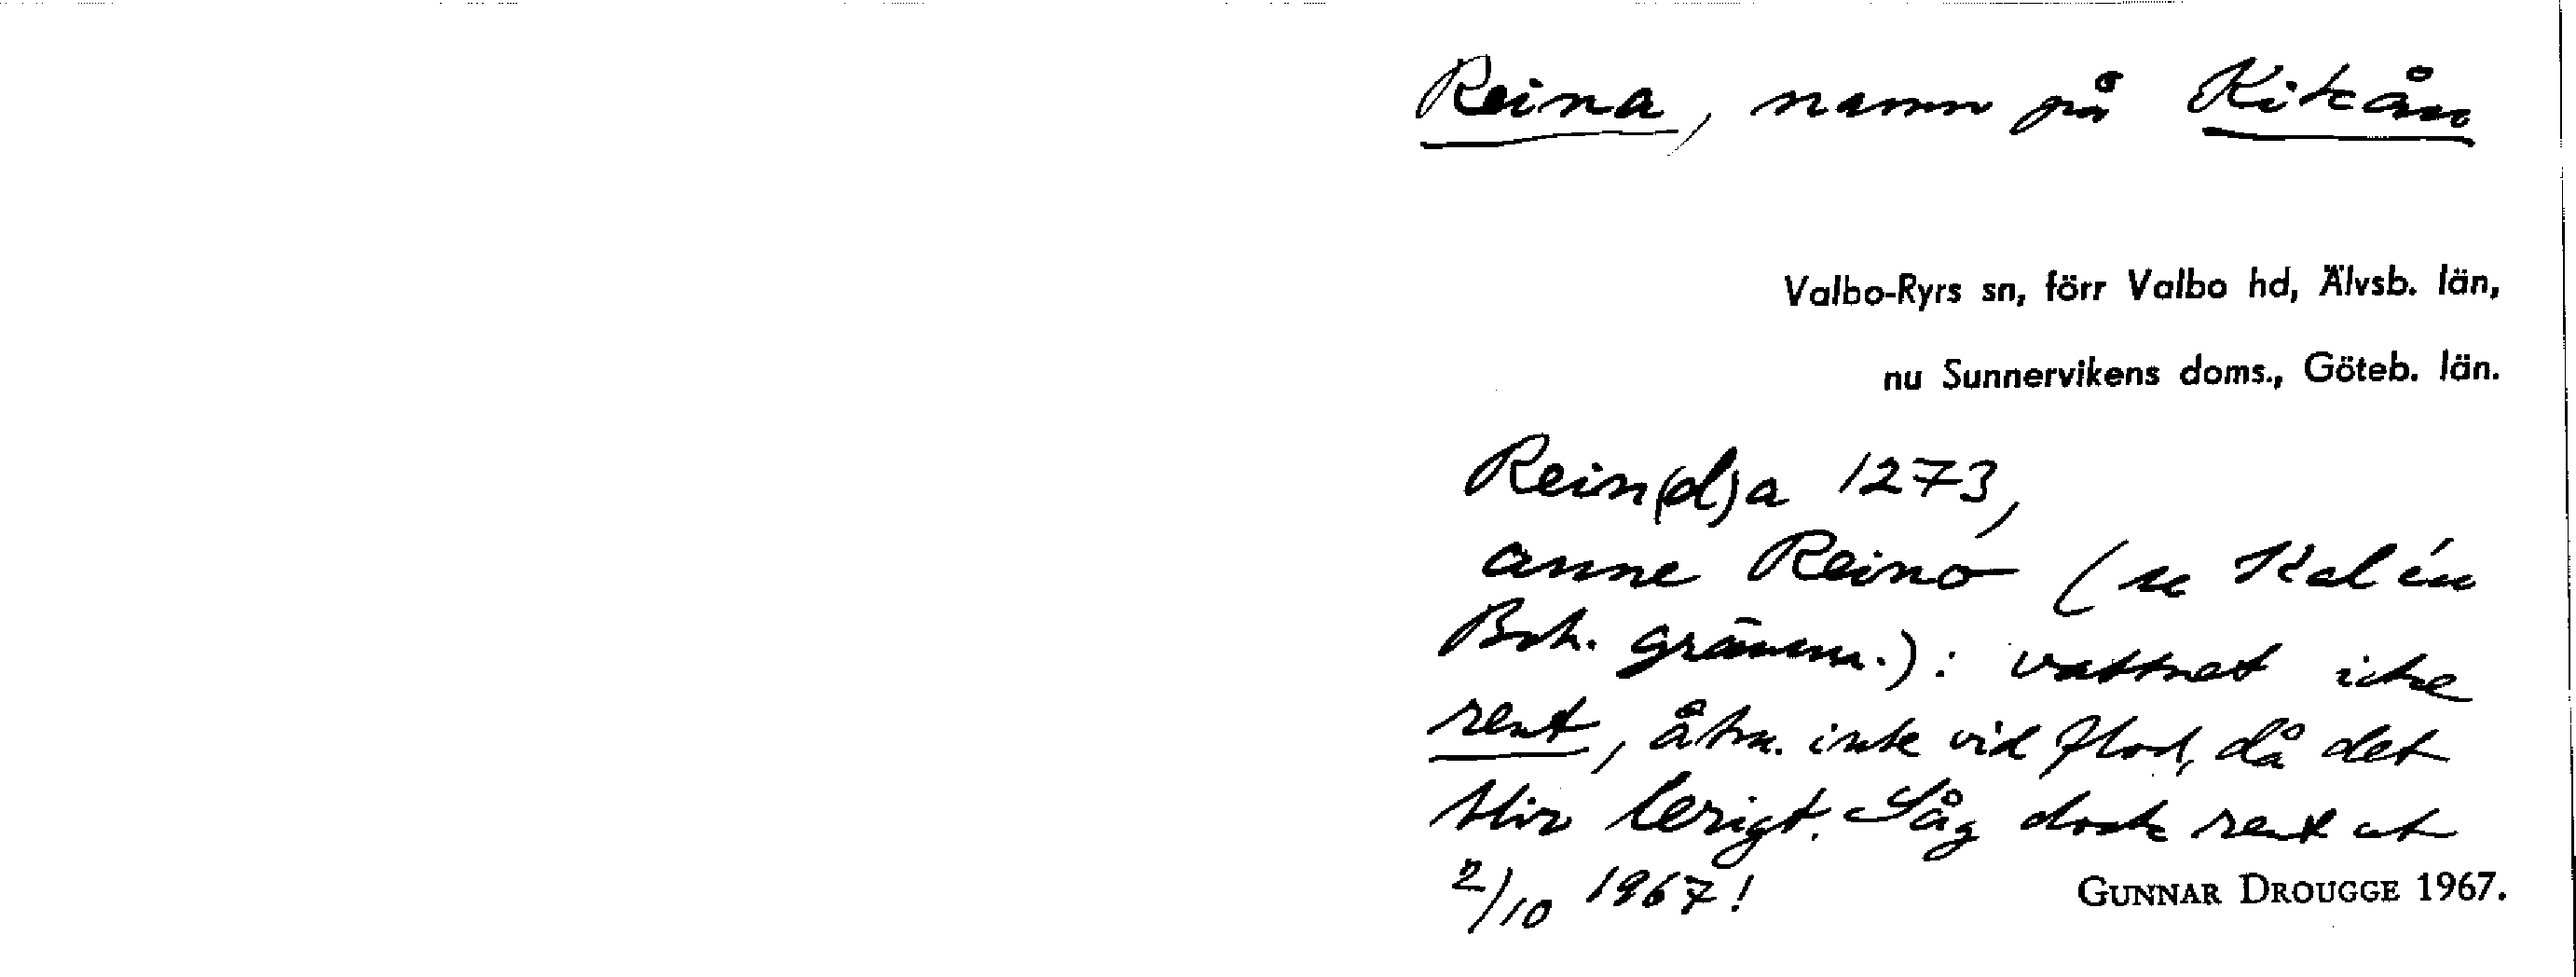 Reina, namn på Kikån
Valbo-Ryrs sn, förr Valbo hd, Älvsb. län,
nu Sunnervikens doms., Göteb. län.
Rein(d)a 1273,
anne Reino (se Kalén
Boh. gränsen.): vattnet icke
rent, åtm. inte vid flod, då det
blir lerigt. Såg dock rent ut
2/10 1967!
GUNNAR DROUGGE 1967.